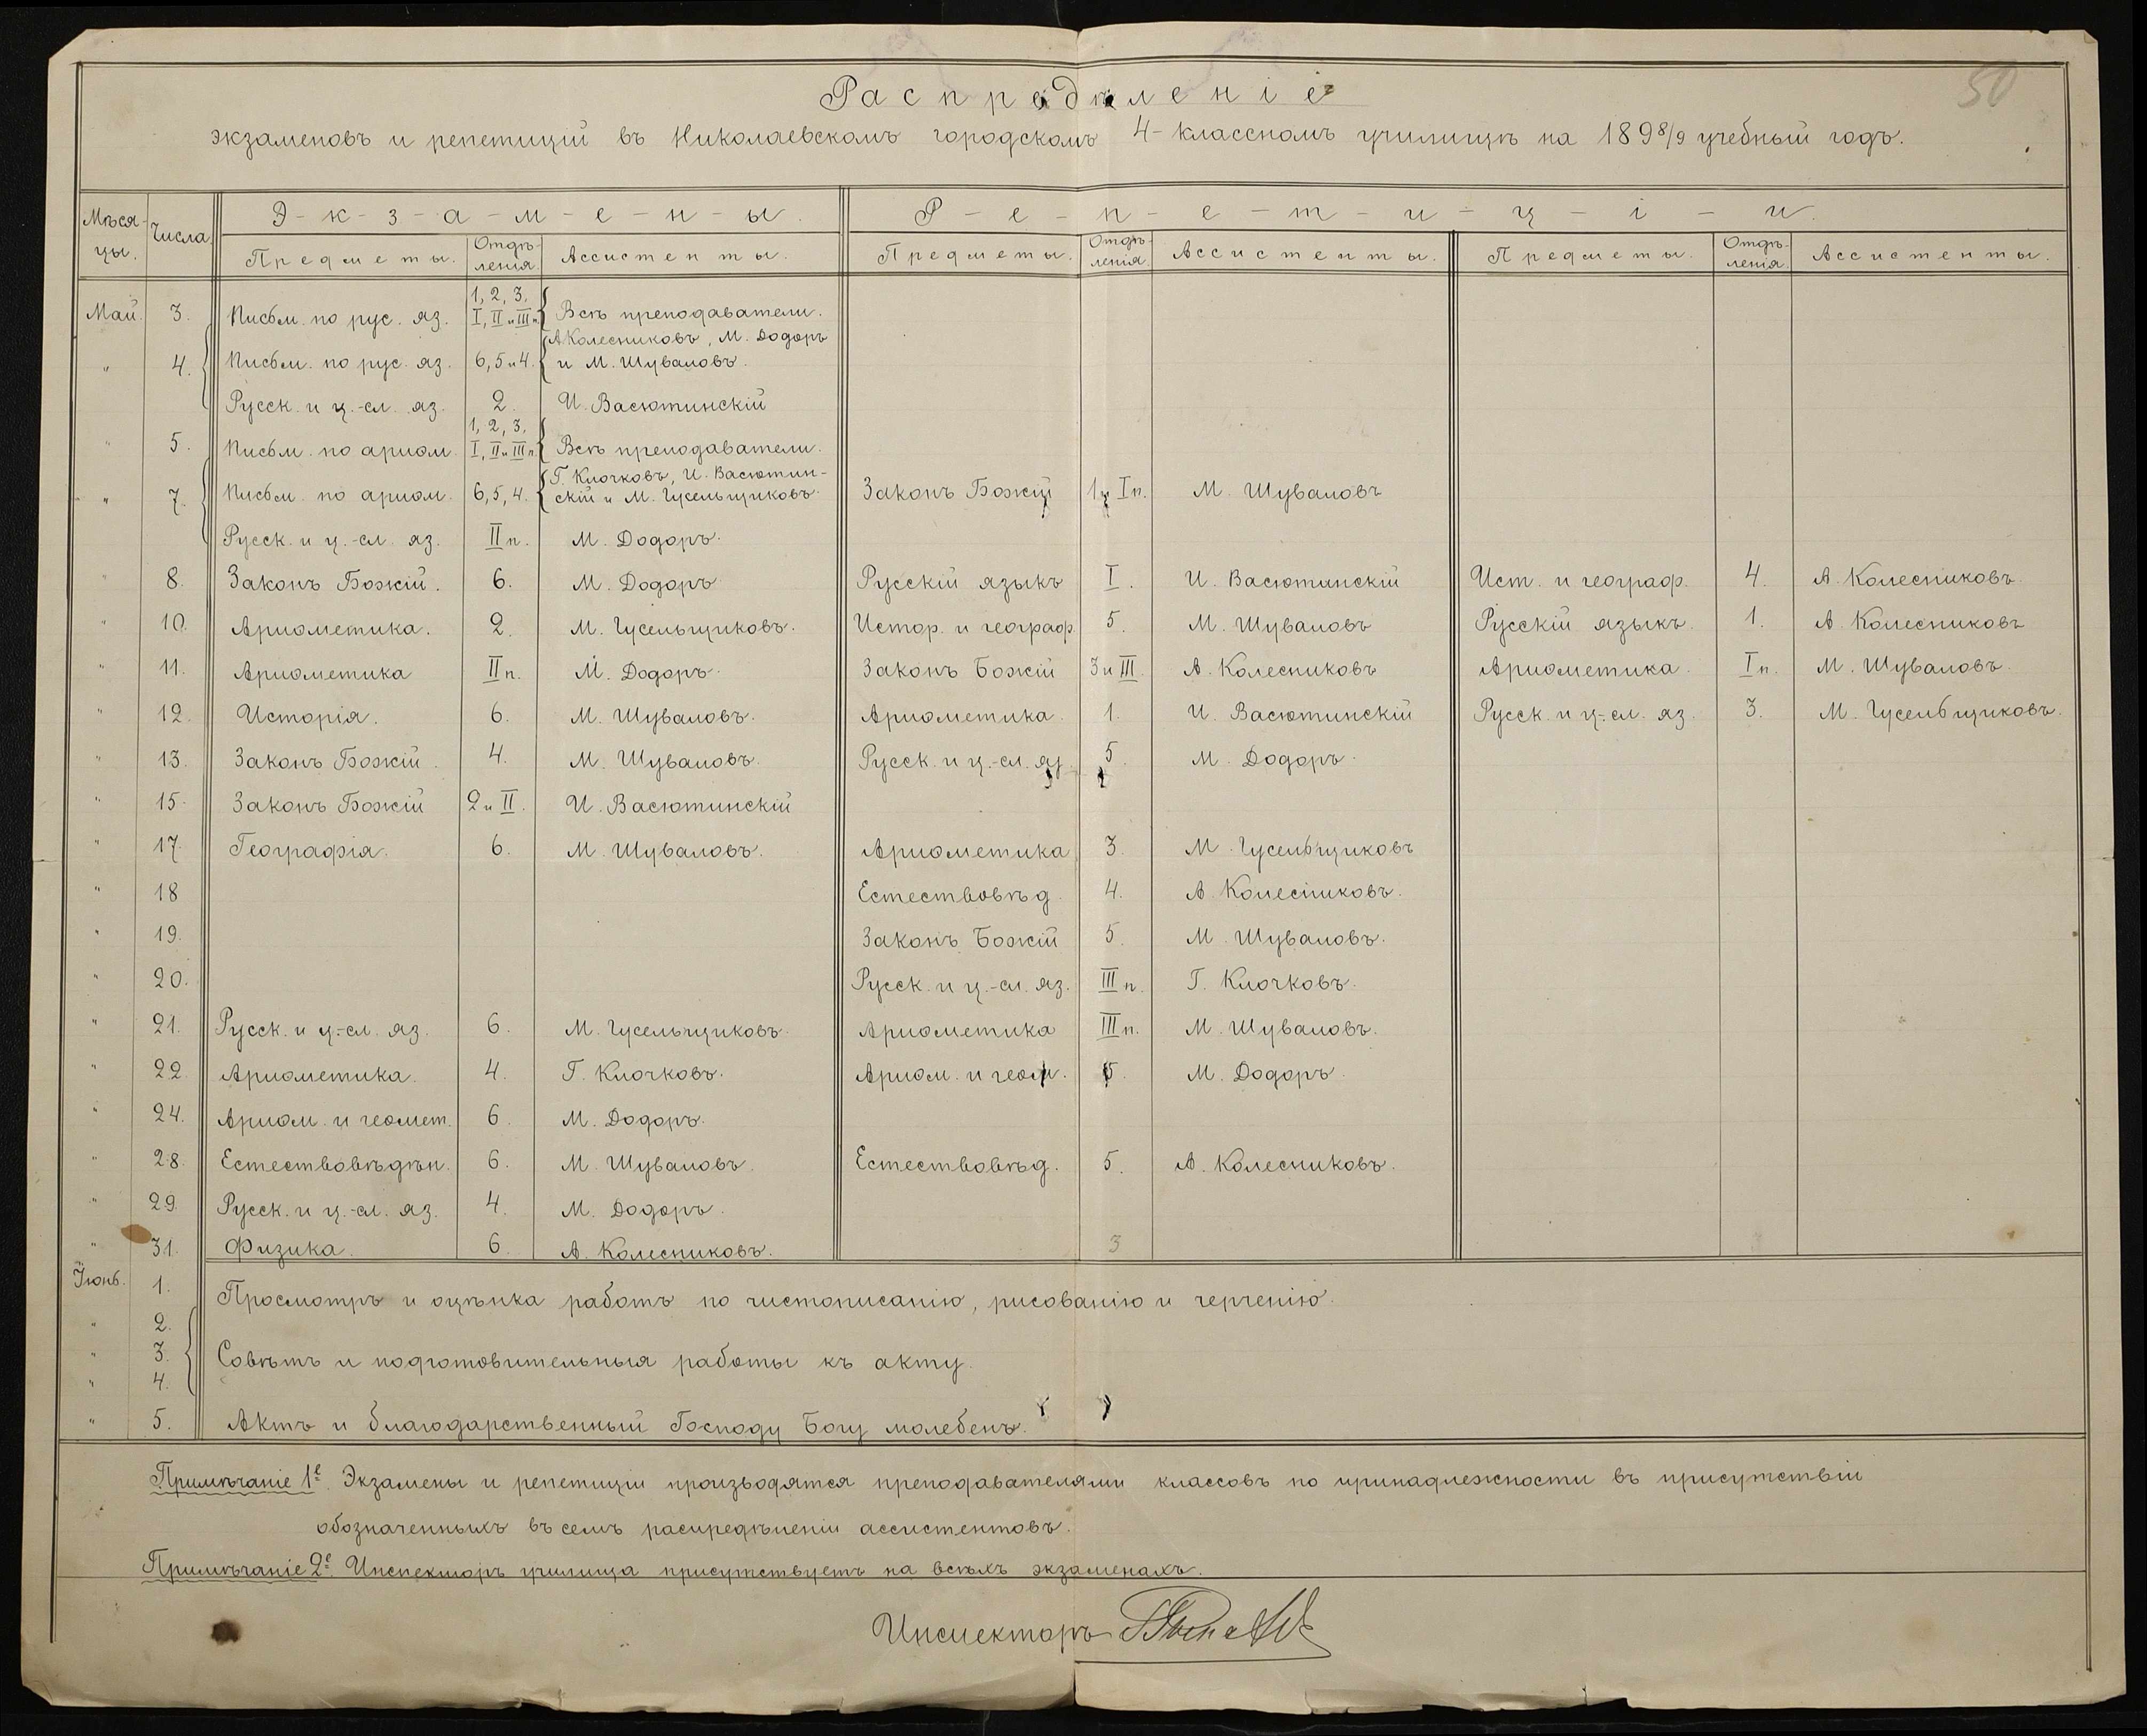 50
Распредѣленіе
экзаменовъ и репетицій въ Николаевскомъ городскомъ 4-классномъ училищѣ на 1898/9 учебный годъ.
Мѣся-цы. Числа. Экзамены. Репетиціи.
Предметы. Отдѣ-ленія. Ассистенты. Предметы. Отдѣ-ленія Ассистенты. Предметы. Отдѣ-ленія. Ассистенты.
Май. 3. Письм. по рус. яз. 1, 2, 3. I, II и III п. Всѣ преподаватели.
" 4. Письм. по рус. яз. 6, 5 и 4. А. Колесниковъ, М. Додоръ и М. Шуваловъ.
Русск. и ц.-сл. яз. 2. И. Васютинскій
" 5. Письм. по ариѳм. 1, 2, 3. I, II и III п. Всѣ преподаватели.
" 7. Письм. по ариѳм. 6, 5, 4. Г. Клочковъ, И. Васютин-скій и М. Гусельщиковъ. Законъ Божій 1 и I п. М. Шуваловъ
Русск. и ц.-сл. яз. II п. М. Додоръ.
" 8. Законъ Божій. 6. М. Додоръ Русскій языкъ I. И. Васютинскій Ист. и географ. 4. А. Колесниковъ.
" 10. Ариѳметика. 2. М. Гусельщиковъ. Истор. и географ. 5. М. Шуваловъ Русскій языкъ. 1. А. Колесниковъ
" 11. Ариѳметика II п. М. Додоръ. Законъ Божій 3 и III. А. Колесниковъ Ариѳметика. I п. М. Шуваловъ.
" 12. Исторія. 6. М. Шуваловъ. Ариѳметика. 1. И. Васютинскій Русск. и ц.-сл. яз. 3. М. Гусельщиковъ.
" 13. Законъ Божій. 4. М. Шуваловъ. Русск. и ц.-сл. яз. 5. М. Додоръ.
" 15. Законъ Божій 2 и II. И. Васютинскій
" 17. Географія. 6. М. Шуваловъ. Ариѳметика 3. М. Гусельщиковъ
" 18 Естествовѣд. 4. А. Колесниковъ.
" 19. Законъ Божій 5. М. Шуваловъ.
" 20. Русск. и ц.-сл. яз. III п. Г. Клочковъ.
" 21. Русск. и ц.-сл. яз. 6. М. Гусельщиковъ. Ариѳметика III п. М. Шуваловъ.
" 22. Ариѳметика. 4. Г. Клочковъ. Ариѳм. и геом. 5. М. Додоръ.
" 24. Ариѳм. и геомет. 6. М. Додоръ.
" 28. Естествовѣдѣн. 6. М. Шуваловъ. Естествовѣд. 5. А. Колесниковъ.
" 29. Русск. и ц.-сл. яз. 4. М. Додоръ.
" 31. Физика. 6. А. Колесниковъ. 3
Іюнь. 1. Просмотръ и оцѣнка работъ по чистописанію, рисованію и черченію.
" 2.
" 3. Совѣтъ и подготовительныя работы къ акту.
" 4.
" 5. Актъ и благодарственный Господу Богу молебенъ.
Примѣчаніе 1е. Экзамены и репетиціи производятся преподавателями классовъ по принадлежности въ присутствіи
обозначенныхъ въ семъ распредѣленіи ассистентовъ.
Примѣчаніе 2е. Инспекторъ училища присутствуетъ на всѣхъ экзаменахъ.
Инспекторъ